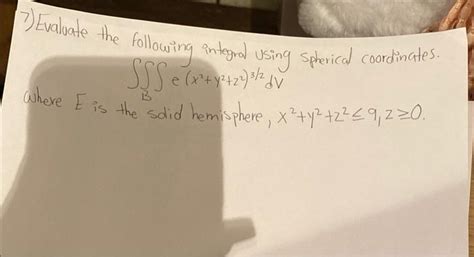 7) Evaluate the following integral using spherical coordinates.
∭ e (x²+y²+z²)^3/2 dV
B
where E is the solid hemisphere, x²+y²+z² ≤ 9, z ≥ 0.